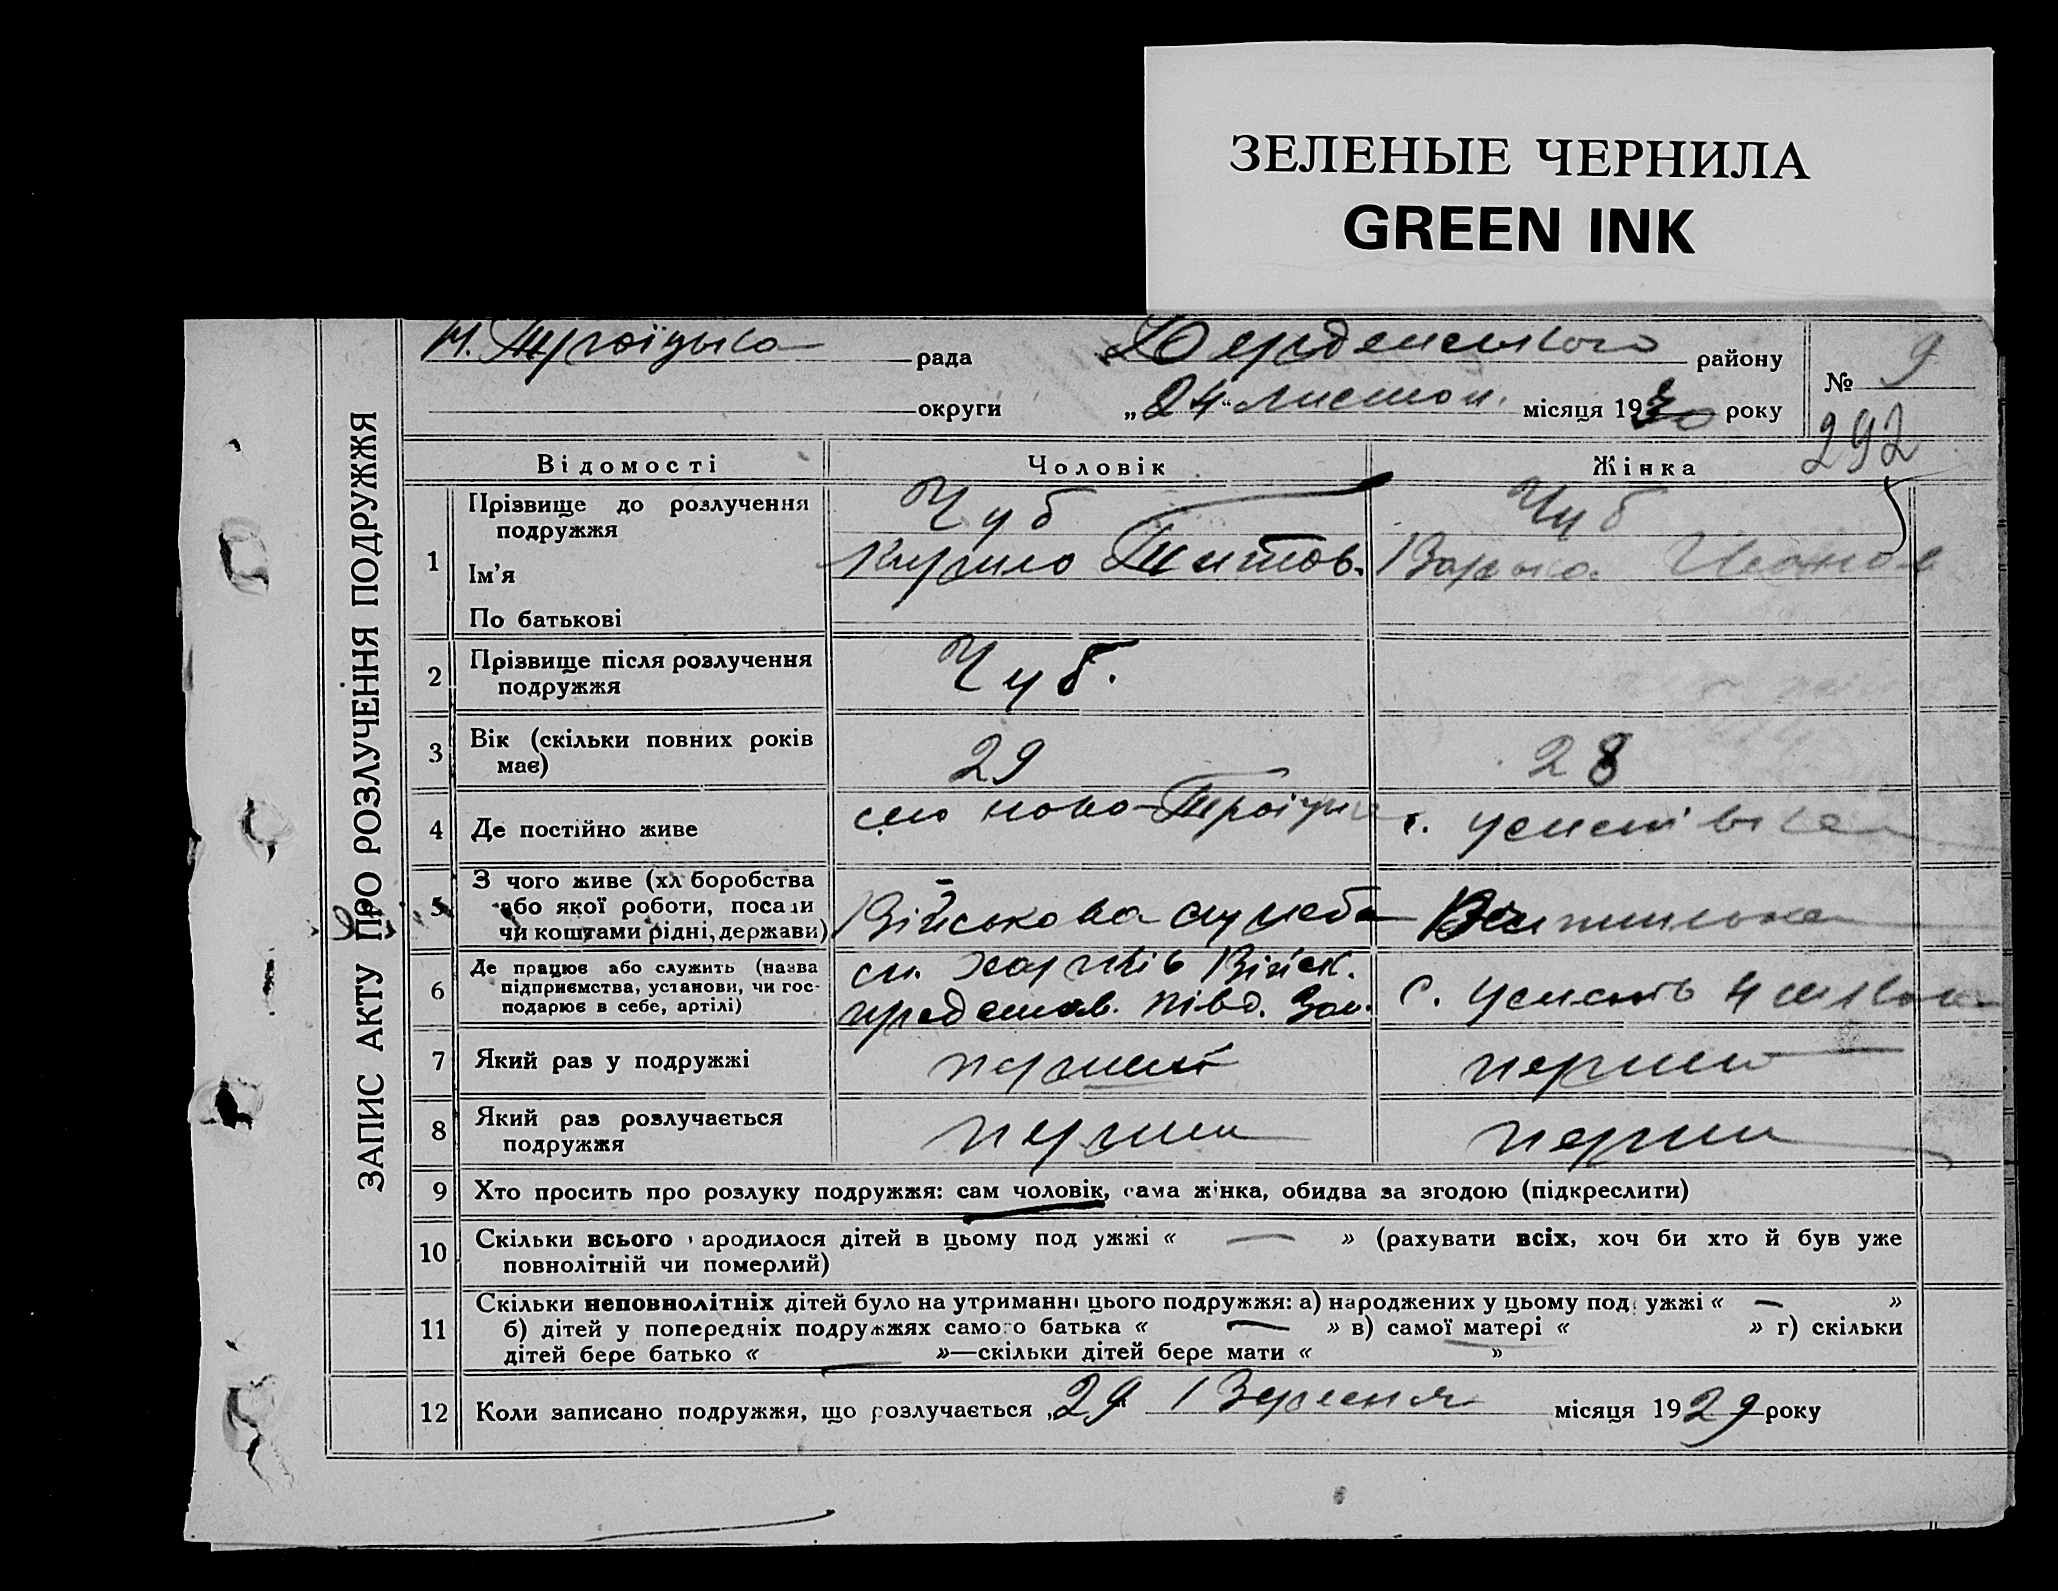 ЗЕЛЕНЫЕ ЧЕРНИЛА
GREEN INK
ЗАПИС АКТУ ПРО РОЗЛУЧЕННЯ ПОДРУЖЖЯ
Н. Троїцька рада району № 9
округи „24“ листоп. місяця 1930 року
292
Відомості Чоловік Жінка
1 Прізвище до розлучення подружжя Чуб Чуб
Ім'я Кирило Титов. Варька Іванов
По батькові
2 Прізвище після розлучення подружжя Чуб.
3 Вік (скільки повних років має) 29 28
4 Де постійно живе село Ново-Троїцьке с.
5 З чого живе (хл боробства або якої роботи, посади чи коштами рідні, держави) Військова служба Вчителька
6 Де працює або служить (назва підприємства, установи, чи господарює в себе, артілі) м. Харків Війск. с.
7 Який раз у подружжі перший перший
8 Який раз розлучається подружжя перши перши
9 Хто просить про розлуку подружжя: сам чоловік, сама жінка, обидва за згодою (підкреслити)
10 Скільки всього ародилося дітей в цьому под ужжі « — » (рахувати всіх, хоч би хто й був уже
повнолітній чи померлий)
11 Скільки неповнолітніх дітей було на утриманні цього подружжя: а) народжених у цьому под ужжі « — »
б) дітей у попередніх подружжях самого батька « — » в) самої матері « — » г) скільки
дітей бере батько « — »—скільки дітей бере мати « »
12 Коли записано подружжя, що розлучається „29“ Вересня місяця 1929 року